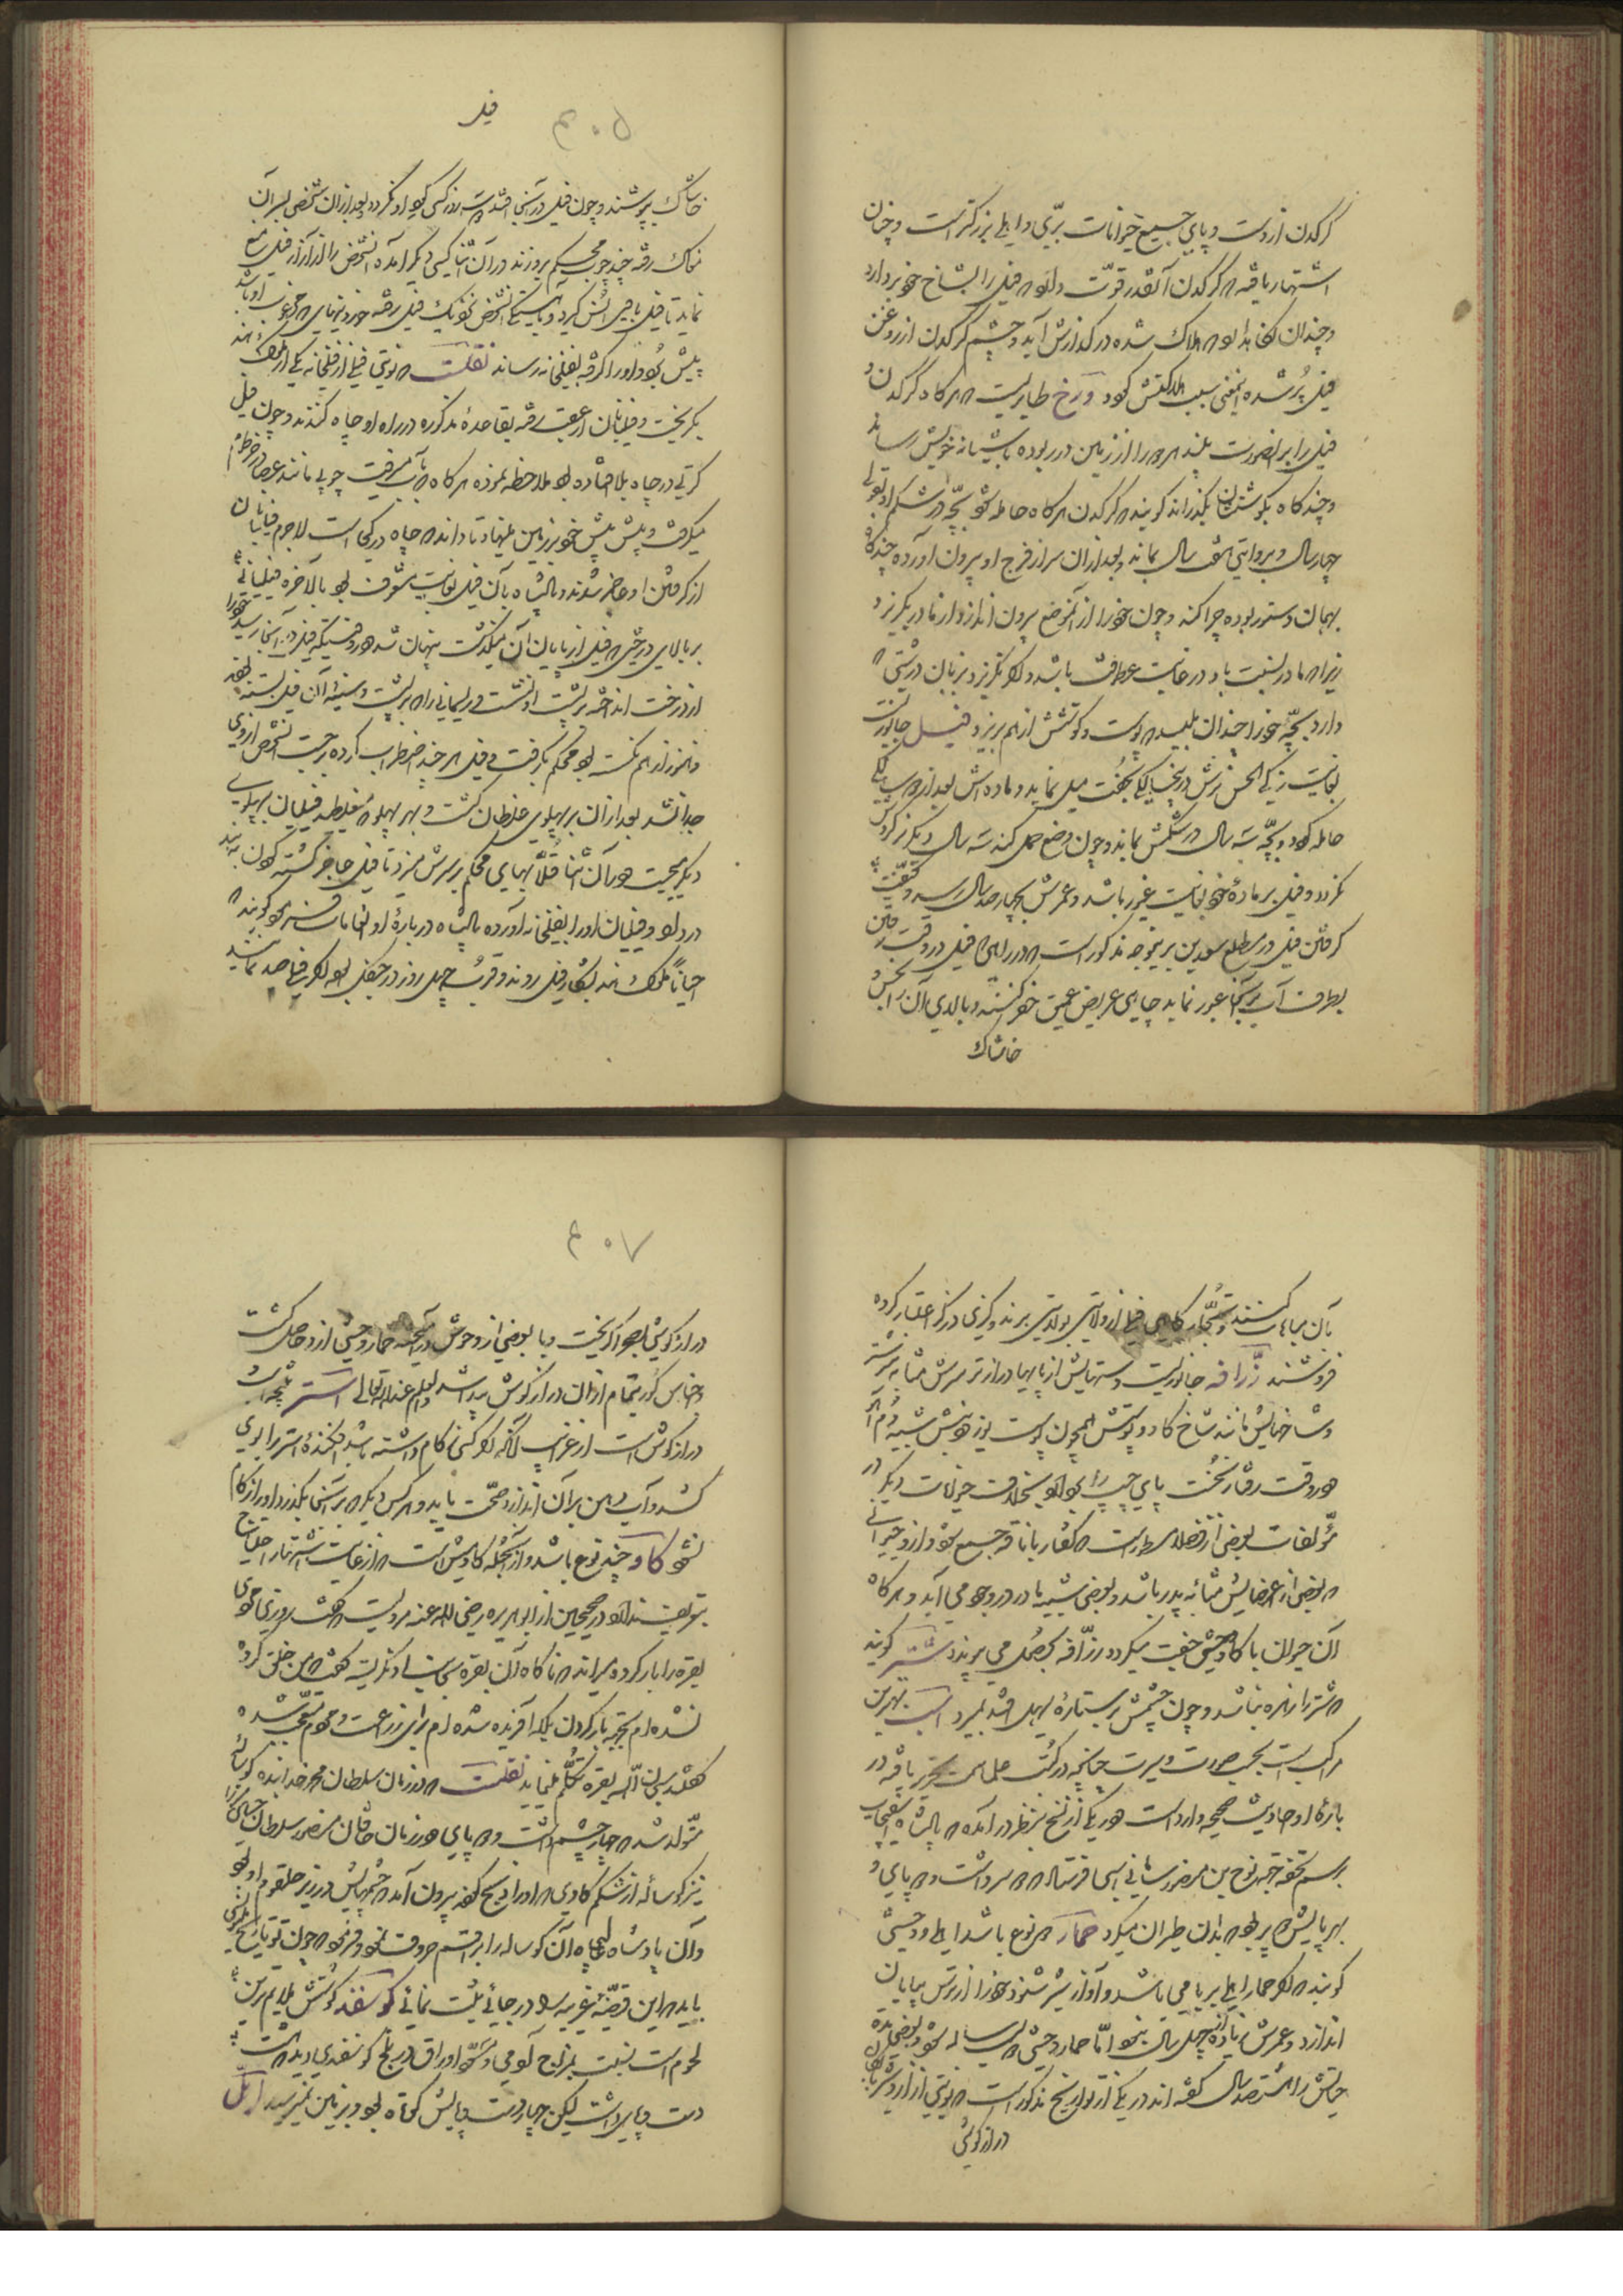 کرگدن از دست و پای جمیع حیوانات برّی و اهلی بزرگتر است و چنان
اشتهار یافته که کرگدن آنقدر قوّت دارد که فیل را بشاخ خود بردارد
و چندان نگاهدارد که هلاک شده در گذارش آید و چشم کرگدن از روغن
فیل پر شده اینمعنی سبب هلاکتش گردد و رخ طایریست که هرگاه کرگدن و
فیل را برانصورت بیند هر دو را از زمین در ربوده بآشیانه خویش رساند
و چند گاه بگوشت ایشان بگذراند گویند که کرگدن هرگاه حامله شود بچّه در شکم او بقولی
چهار سال و بروایتی هفت سال بماند و بعد از ان سر از فرج او بیرون آورده چند گاه
بهمان دستور بوده چرا کند و چون خود را از آنموضع بیرون اندازد از مادر بگریزد
زیرا که مادر نسبت باو در غایت عطوفت باشد و اگر نگریزد بزبان درشتی که
دارد بچّه خود را چندان بلیسد که پوست و گوشتش از هم بریزد فیل جانوریست
بغایت زیرک
حامله گردد و بچّه سه سال در شکمش بماند و چون وضع حمل کند سه سال دیگر نر گرد وی
نگردد و فیل بر ماده خود بغایت غیور باشد و عمرش بچهار صد سال رسد و کیفیّت
گرفتن فیل در مطلع سعدین برینوجه مذکور است که در راهی که فیل در وقت رفتن
بطرف آب بر آنجا عبور نماید چاهی عریض عمیق حفر کنند و بالای آن را بخس و
خاشاک
فیل
۴۰۵
خاشاک بپوشند و چون فیل در آنجا افتد سه روز کسی گرد او نگردد بعد از ان شخصی بسر آن
مغاک رفته چند چوب محکم برو زند در آن اثنا کسی دیگر آمده آنشخص را از آزار فیل منع
نماید تا فیل با وی انس گیرد و بآهستگی آنشخص نزدیک فیل رفته خوردنیهایی که مرغوب او باشد
پیش برد و او را گرفته بفیلخانه رساند نقلست که نوبتی فیلی از فیلخانه یکی از ملوک هند
بگریخت و فیلبانان از عقب رفته بقاعده مذکوره در راه او چاه کندند و چون فیل
کرتی در چاه بلا افتاده بود ملاحظه نموده هرگاه که بآب میرفت چوبی مانند عصا در خرطوم
میگرفت و پیش پیش خود بر زمین مینهاد تا داند که چاه در کجا است لاجرم فیلبانان
از گرفتن او عاجز شدند و پادشاه بآن فیل بغایت مشعوف بود بالآخره فیلبانی
بر بالای درختی که فیل از پایان آن میگذشت پنهان شد و در وقتیکه فیل در آنجا رسید خود را
از درخت انداخته بر پشت او نشست و ریسمانی را که بر پشت و سینه آن فیل بسته بودند
و هنوز از هم نگسسته بود محکم بگرفت و فیل هر چند اضطراب کرده بر جست آنشخص از وی
جدا نشد بعد از ان بر پهلوی غلطان گشت و بهر پهلو که میغلطید فیلبان بپهلوی
دیگر میجست و در آن اثنا قلابهای محکم بر سرش میزد تا فیل عاجز گشته گردن بنهاد
در داد و فیلبان او را بفیلخانه آورده پادشاه در باره او انعامات فرمود گویند که
احیاناً ملوک هند بشکار فیل روند و قرب چهل روز در جنگل بوده اگر فیلی صید نمایند
بآن مباهات کنند و تجّار گاهی فیل از ولایتی بولایتی برند و بگزی در گز اعتبار کرده
فروشند زرافه جانوریست دستهایش از پایها درازتر سرش مشابه سر شتر
و شاخهایش مانند شاخ گاو و پوستش همچون پوست یوز و دمش شبیه بدم آهو
و در وقت رفتار نخست پای چپ را بردارد بخلاف حیوانات دیگر و در
مؤلفات بعضی از فضلا مسطور است که کفتار با ناقه جمع شود و ازو حیوانی
که بعضی از اعضایش مشابه پدر باشد و بعضی شبیه مادر در وجود می آید و هرگاه
آن حیوان با گاو وحشی جفت میگردد زرّافه بحصول می پیوندد شتر گویند
که شتر را زهره نباشد و چون چشمش بر ستاره سهیل افتد بمیرد اسب بهترین
مراکب است بحسب صورت و سیرت چنانچه در کتب علما سمت تحریر یافته در
باره او احادیث صحیحه وارد است و در یکی از نسخ بنظر در آمده که پادشاه سقلاب
برسم تحفه جهة نوح بن منصور سامانی اسبی فرستاد که دو سر داشت و دو پای و
بهر پایش دو پر بود که بدان طیران میکرد حمار دو نوع باشد اهلی و وحشی
گویند که اگر حمار اهلی بر بامی باشد و آواز شیر شنود خود را از ترس بپایان
اندازد و عمرش زیاده از چهل سال نبود امّا حمار وحشی دویست ساله شود و بعضی مدت
حیاتش را هشتصد سال گفته اند در یکی از تواریخ مذکور است که نوبتی از اردوی
دراز گوشی
۴۰۷
دراز گوشی بصحرا گریخت و با بعضی از وحوش در آمیخته حمار وحشی ازو حاصل گشت
و اجناس گور تمام از ان دراز گوش پیدا شد و العلم عند الله تعالی استر نتیجه اسب
دراز گوش است از غرایب آنکه اگر کسی زکام داشته باشد افکنده استر را بوی
کند و آب دهن بر آن اندازد صحّت یابد و هر کس دیگر که بر آنجا بگذرد او را زکام
شود گاو چند نوع باشد و از آنجمله گاومیش است که از غایت اشتهار احتیاج
بتعریف ندارد در صحیحین از ابو هریره رضی الله عنه مرویست که گفت روزی مردی
بقره را بار کرد و میراند که ناگاه آن بقره بجانب او نگریسته گفت که من خلق کرده
نشده ام بجهة بار کردن بلکه آفریده شده ام برای زراعت و مردم متعجّب شده
گفتند سبحان الله بقره تکلّم مینماید نقلست که در زمان سلطان محمد خدابنده گوساله
متولد شد که چهار چشم داشت و سه پای و در زمان خاقان منصور سلطان حسین میرزا
نیز گوساله از شکم گاوی که او را ذبح کردند بیرون آمد که چشمهایش در زیر حلقوم او بود
و آن پادشاه آن گوساله را بر اقم حروف نمود و فرمود که چون تو تاریخ مینویسی
باید که این قصّه غریبه را در جائی ثبت نمائی گوسفند گوشتش ملایم ترین
لحوم است نسبت بمزاج آدمی و مسوّد اوراق در بلخ گوسفندی دید که هشت
دست و پای داشت لیکن چهار دست و پایش کوتاه بود و بزمین نمیرسید ایّل